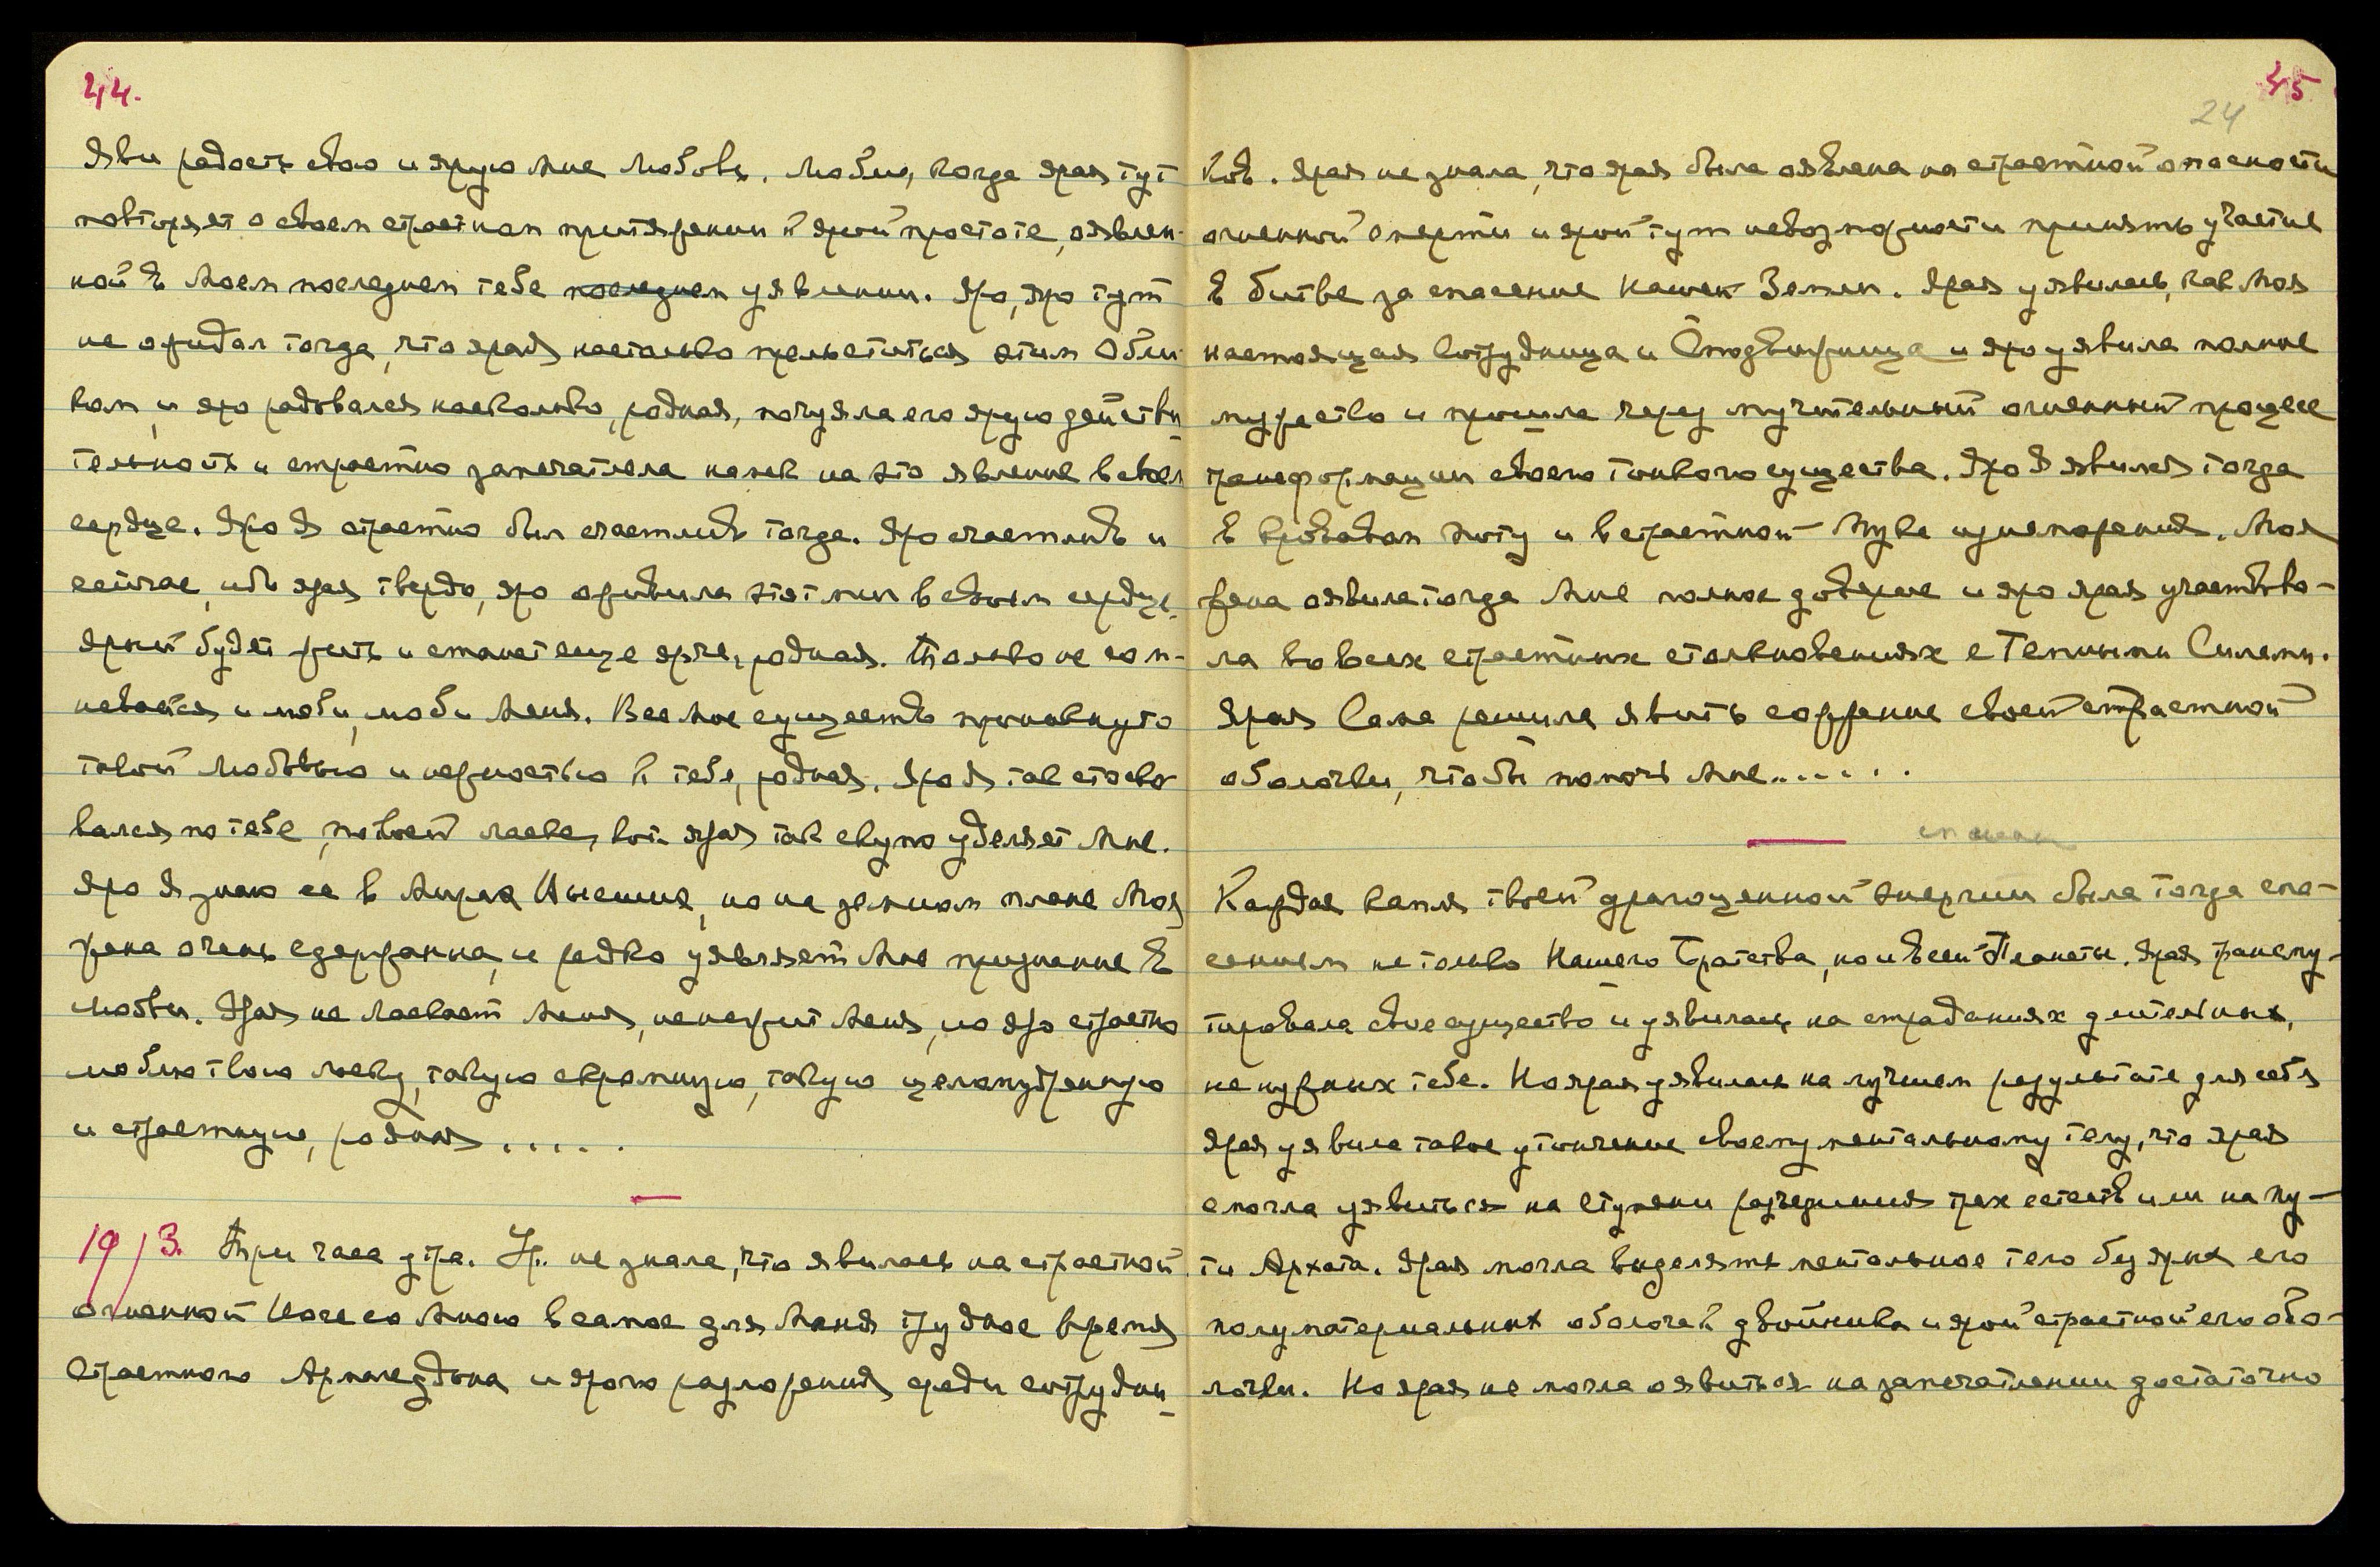 44.
Яви радость свою и ярую Мне Любовь. Люблю, когда ярая тут
повторяет о своем страстном притяжении к ярой простоте, оявлен-
ной в Моем последнем тебе последнем уявлении. Яро, яро тут
не ожидал тогда, что ярая настолько прельститься этим Обли-
ком, и яро радовался насколько, родная, почуяла его ярую действи-
тельность и страстно запечатлела намек на это явление в своем
сердце. Яро Я страстно был счастлив тогда. Яро счастлив и
сейчас, ибо ярая твердо, яро оживила этот миг в своем сердце,
яркий будет жить и станет еще ярче, родная. Только не сом-
невайся и люби, люби Меня. Все Мое существо проникнуто
такой Любовью и нежностью к тебе, родная. Яро Я так стоско-
вался по тебе, по твоей ласке, кот. ярая так скупо уделяет Мне.
Яро Я знаю ее в Мирах Высших, но на земном плане Моя
жена очень сдержанна, и редко уявляет Мне признание в
любви. Ярая не Ласкает Меня, не нежит Меня, но яро страстно
люблю твою ласку, такую скромную, такую целомудренную
и страстную, родная .....
19/3. Три часа утра. Ур. не знала, что явилась на страстной
огненной Ноше со Мною в самое для Меня трудное время
Страстного Армагеддона и ярого разложения среди сотрудни-
45
24
ков. Ярая не знала, что ярая была оявлена на страстной опасности
огненной смерти и ярой тут невозможности принять участие
в битве за спасение нашей Земли. Ярая уявилась, как Моя
настоящая Сотрудница и Сподвижница и яро уявила полное
мужество и прошла через мучительный огненный процесс
трансформации своего тонкого существа. Яро Я явился тогда
в кровавом поту и в страстной Муке изнеможения. Моя
жена оявила тогда Мне полное доверие и яро ярая участвова-
ла во всех страстных столкновениях с Темными Силами.
Ярая Сама решила явить сожжение своей страстной
оболочки, чтобы помочь Мне......
Каждая капля твоей драгоценной энергии была тогда спа-
сением не только Нашего Братства, но и всей Планеты. Ярая трансму-
тировала свое существо и уявилась на страданиях длительных,
не нужных тебе. Но ярая уявилась на лучшем результате для себя
Ярая уявила такое утончение своему ментальному телу, что ярая
смогла уявиться на Ступени разъединения трех естеств или на пу-
ти Архата. Ярая могла выделять ментальное тело без ярых его
полуматериальных оболочек двойника и ярой страстной его обо-
лочки. Но ярая не могла оявиться на запечатлении достаточно